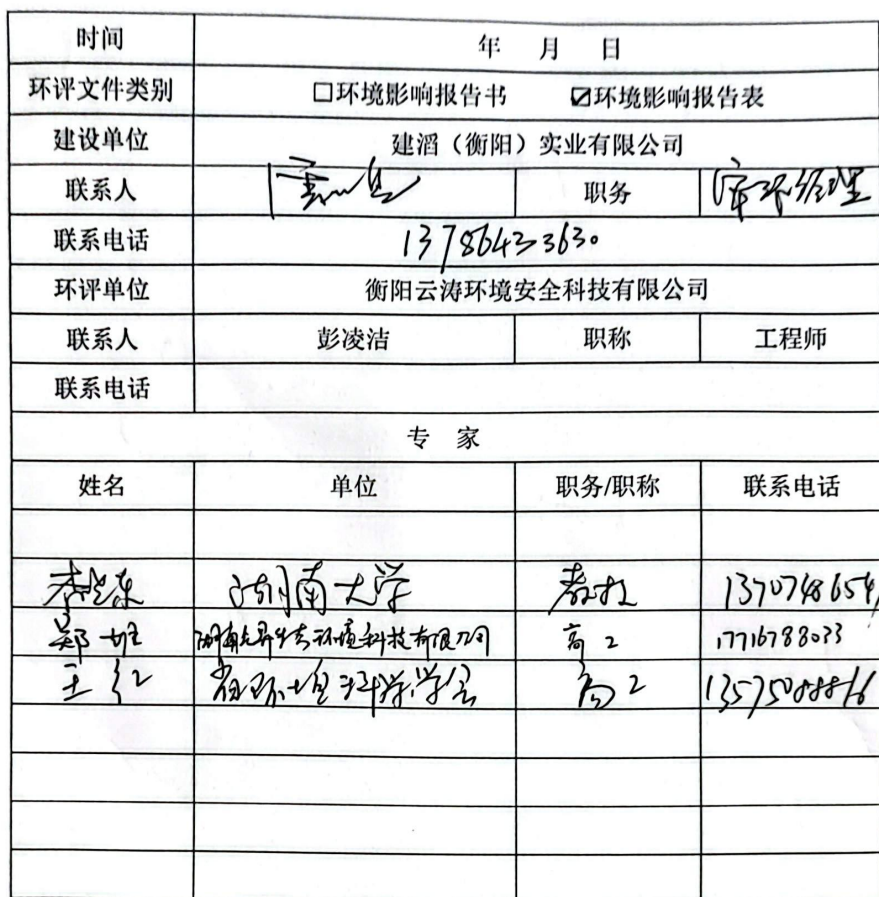 时间 年 月 日
环评文件类别 □环境影响报告书 ☑环境影响报告表
建设单位 建滔（衡阳）实业有限公司
联系人 职务 安环经理
联系电话 13786433630
环评单位 衡阳云涛环境安全科技有限公司
联系人 彭凌洁 职称 工程师
联系电话
专 家
姓名 单位 职务/职称 联系电话
李晓东 湖南大学 教授
郑 高工 17716788033
王红 省环境科学学会 高工 13575088816